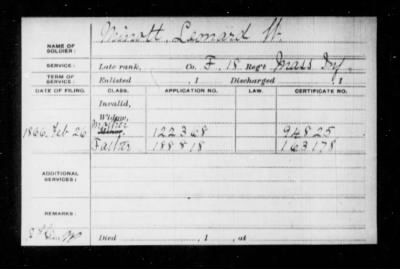 NAME OF SOLDIER: Minott, Leonard W.
SERVICE: Late rank, Co. F, 18 Reg't Mass Inf.
TERM OF SERVICE: Enlisted , 1 Discharged , 1
DATE OF FILING. CLASS. APPLICATION NO. LAW. CERTIFICATE NO.
Invalid,
Widow,
1866 Feb 26 Mother 122368 94825
Father 188818 163178
ADDITIONAL SERVICES:
REMARKS:
Died , 1 , at